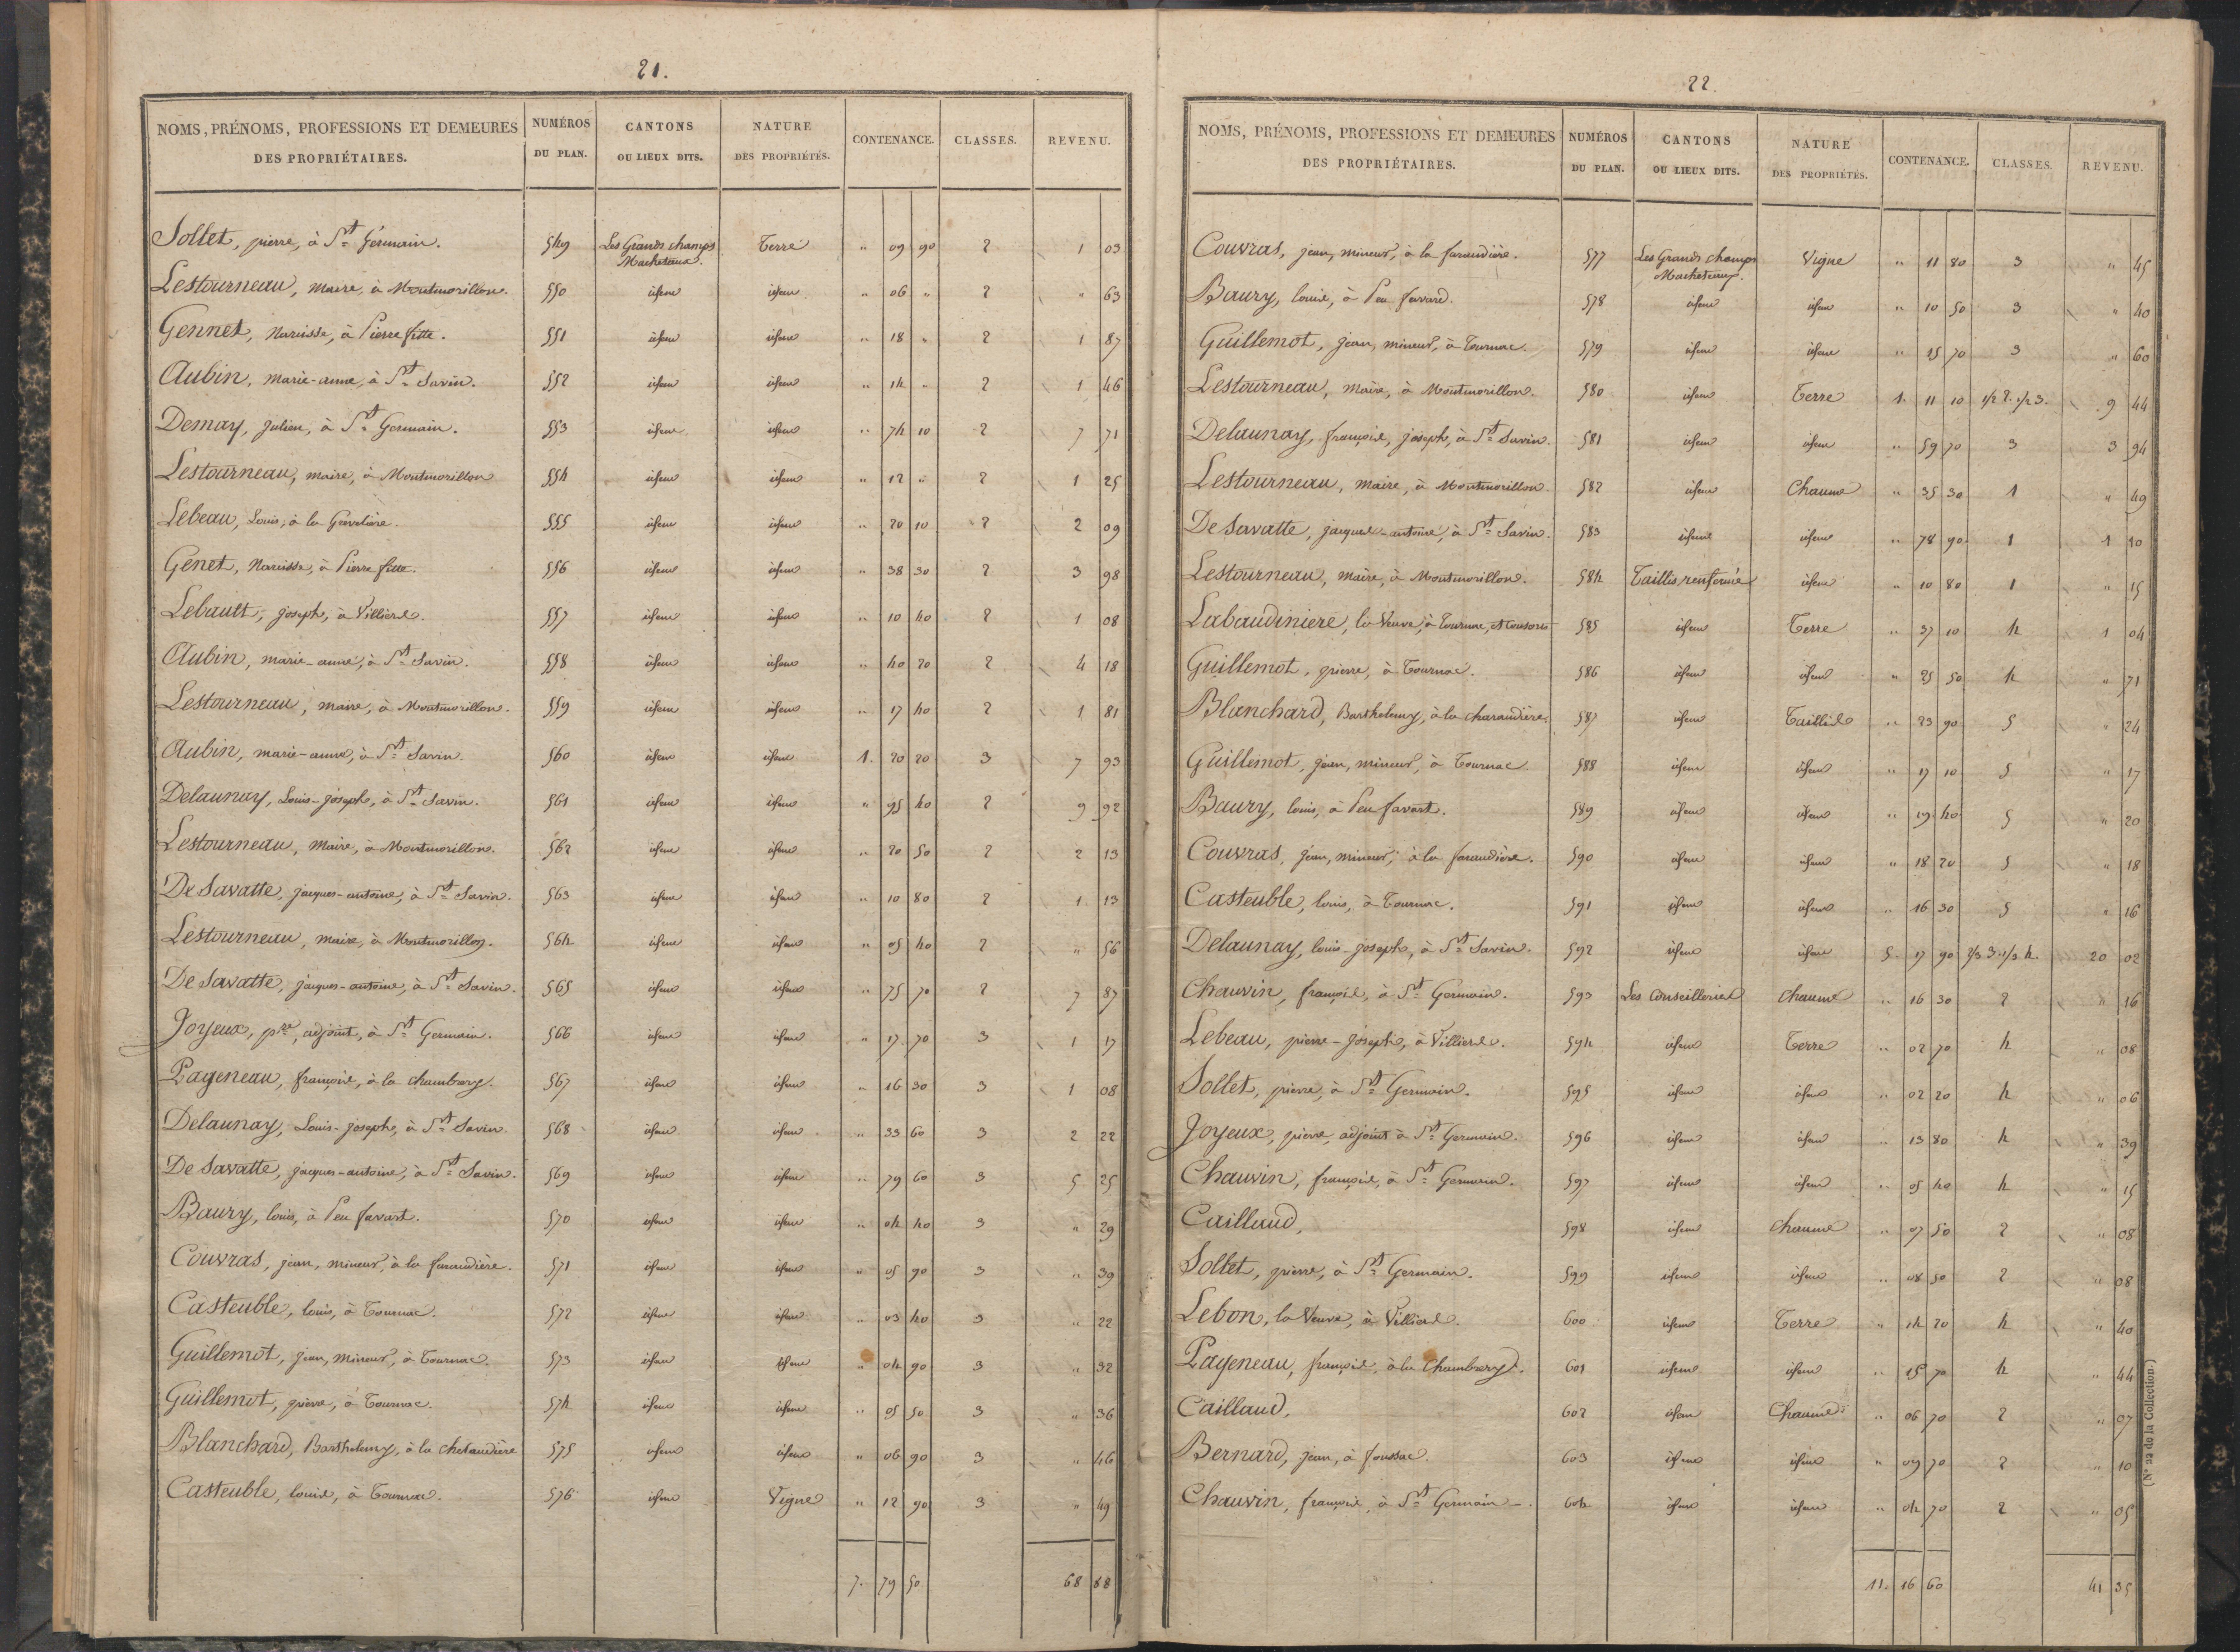 21.
NOMS, PRÉNOMS, PROFESSIONS ET DEMEURES DES PROPRIÉTAIRES. NUMÉROS DU PLAN. CANTONS OU LIEUX DITS. NATURE DES PROPRIÉTÉS. CONTENANCE. CLASSES. REVENU.
Sollet, pierre, à St Germain. 549 Les Grands champs Macheteaux. Terre " 09 90 2 1 03
Lestourneau, maire, à Montmorillon. 550 idem idem " 06 " 2 " 63
Gennet, Narcisse, à Pierre fitte. 551 idem idem " 18 " 2 1 87
Aubin, marie-anne, à St Savin. 552 idem idem " 14 " 2 1 46
Demay, Julien, à St Germain. 553 idem idem " 74 10 2 7 71
Lestourneau, maire, à Montmorillon 554 idem idem " 12 " 2 1 25
Lebeau, Louis, à la 555 idem idem " 20 10 2 2 09
Genet, Narcisse, à Pierre fitte. 556 idem idem " 38 30 2 3 98
Lebault, joseph, à Villiers. 557 idem idem " 10 40 2 1 08
Aubin, marie-anne, à St Savin. 558 idem idem " 40 20 2 4 18
Lestourneau, maire, à Montmorillon. 559 idem idem " 17 40 2 1 81
Aubin, marie-anne, à St Savin. 560 idem idem 1. 20 20 3 7 93
Delaunay, Louis-joseph, à St Savin. 561 idem idem " 95 40 2 9 92
Lestourneau, Maire, à Montmorillon. 562 idem idem " 20 50 2 2 13
De Savatte, jacques-antoine, à St Savin. 563 idem idem " 10 80 2 1 13
Lestourneau, maire, à Montmorillon. 564 idem idem " 05 40 2 " 56
De Savatte, jacques-antoine, à St Savin. 565 idem idem " 75 70 2 7 87
Joyeux, pre, adjoint, à St Germain. 566 idem idem " 17 70 3 1 17
Pageneau, françois, à la chambary. 567 idem idem " 16 30 3 1 08
Delaunay, Louis-joseph, à St Savin 568 idem idem " 33 60 3 2 22
De Savatte, jacques-antoine, à St Savin. 569 idem idem " 79 60 3 5 25
Baury, louis, à Peu favart. 570 idem idem " 04 40 3 " 29
Couvras, jean, mineur, à la faraudière. 571 idem idem " 05 90 3 " 39
Casteuble, louis, à Tournac. 572 idem idem " 03 40 3 " 22
Guillemot, jean, mineur, à Tournac. 573 idem idem " 04 90 3 " 32
Guillemot, pierre, à Tournac. 574 idem idem " 05 50 3 " 36
Blanchard, Barthelemy, à la 575 idem idem " 06 90 3 " 46
Casteuble, louis, à Tournac. 576 idem Vigne " 12 90 3 " 49
7. 79 50 68 88
22
NOMS, PRÉNOMS, PROFESSIONS ET DEMEURES DES PROPRIÉTAIRES. NUMÉROS DU PLAN. CANTONS OU LIEUX DITS. NATURE DES PROPRIÉTÉS. CONTENANCE. CLASSES. REVENU.
Couvras, jean, mineur, à la faraudière. 577 Les Grands champs Macheteaux. Vigne " 11 80 3 " 45
Baury, louis, à Peu favard. 578 idem idem " 10 50 3 " 40
Guillemot, jean, mineur, à Tournac. 579 idem idem " 15 70 3 " 60
Lestourneau, maire, à Montmorillon. 580 idem Terre 1. 11 10 1/2 2. 1/2 3. 9 44
Delaunay, françois, joseph, à St Savin. 581 idem idem " 59 70 3 3 94
Lestourneau, maire, à Montmorillon. 582 idem Chaume " 35 30 1 " 49
De Savatte, jacques-antoine, à St Savin. 583 idem idem " 78 90 1 1 10
Lestourneau, maire, à Montmorillon. 584 Taillis renfermé idem " 10 80 1 " 15
Labaudiniere, la Veuve, à Tournac, 585 idem Terre " 37 10 4 1 04
Guillemot, pierre, à Tournac. 586 idem idem " 25 50 4 " 71
Blanchard, Barthelemy, à la charaudière. 587 idem Taillis " 23 90 5 " 24
Guillemot, jean, mineur, à Tournac 588 idem idem " 17 10 5 " 17
Baury, louis, à Peu favart. 589 idem idem " 19 40 5 " 20
Couvras, jean, mineur, à la faraudière. 590 idem idem " 18 20 5 " 18
Casteuble, louis, à Tournac. 591 idem idem " 16 30 5 " 16
Delaunay, louis-joseph, à St Savin. 592 idem idem 5. 17 90 2/3 3. 1/3 4. 20 02
Chauvin, françois, à St Germain. 593 Les Conseilleries chaume " 16 30 2 " 16
Lebeau, pierre-joseph, à Villiers. 594 idem Terre " 02 70 4 " 08
Sollet, pierre, à St Germain. 595 idem idem " 02 20 4 " 06
Joyeux, pierre, adjoint à St Germain. 596 idem idem " 13 80 4 " 39
Chauvin, françois, à St Germain. 597 idem idem " 05 40 4 " 15
Caillaud, 598 idem chaume " 07 50 2 " 08
Sollet, pierre, à St Germain. 599 idem idem " 08 50 2 " 08
Lebon, la Veuve, à Villiers. 600 idem Terre " 14 20 4 " 40
Pageneau, françois, à la Chambary. 601 idem idem " 15 70 4 " 44
Caillaud, 602 idem Chaume " 06 70 2 " 07
Bernard, jean, à foussac. 603 idem idem " 09 70 2 " 10
Chauvin, françois, à St Germain. 604 idem idem " 04 70 2 " 05
11. 16 60 41 35
(N° 22 de la Collection.)